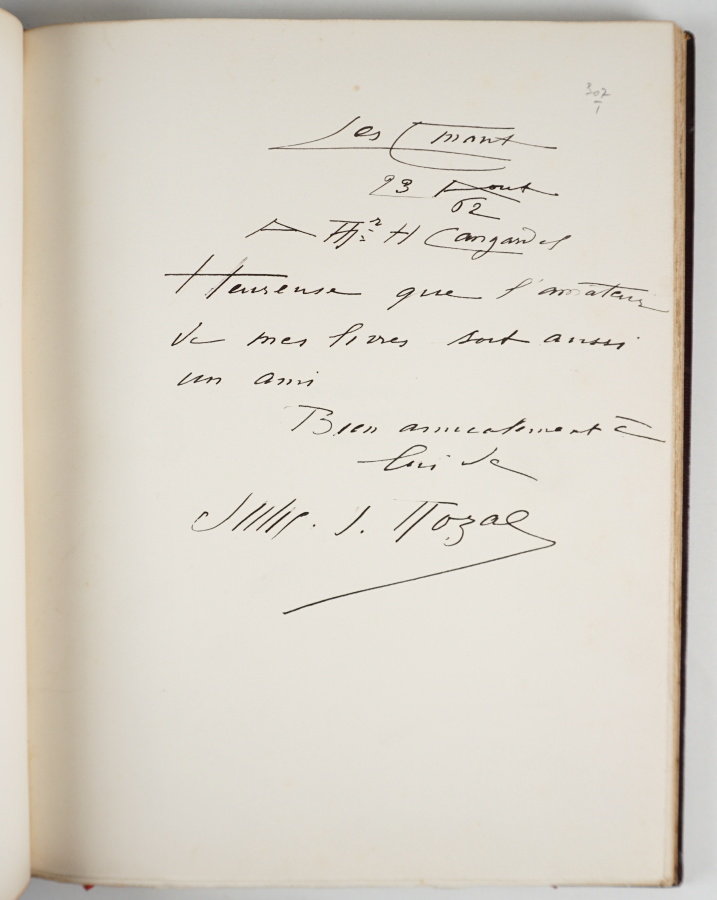 307
1
Les
23 Aout
62
A Mr H Cangardel
Heureuse que l'amateur
de mes livres soit aussi
un ami
Bien amicalement à
lui de
J. Nozal